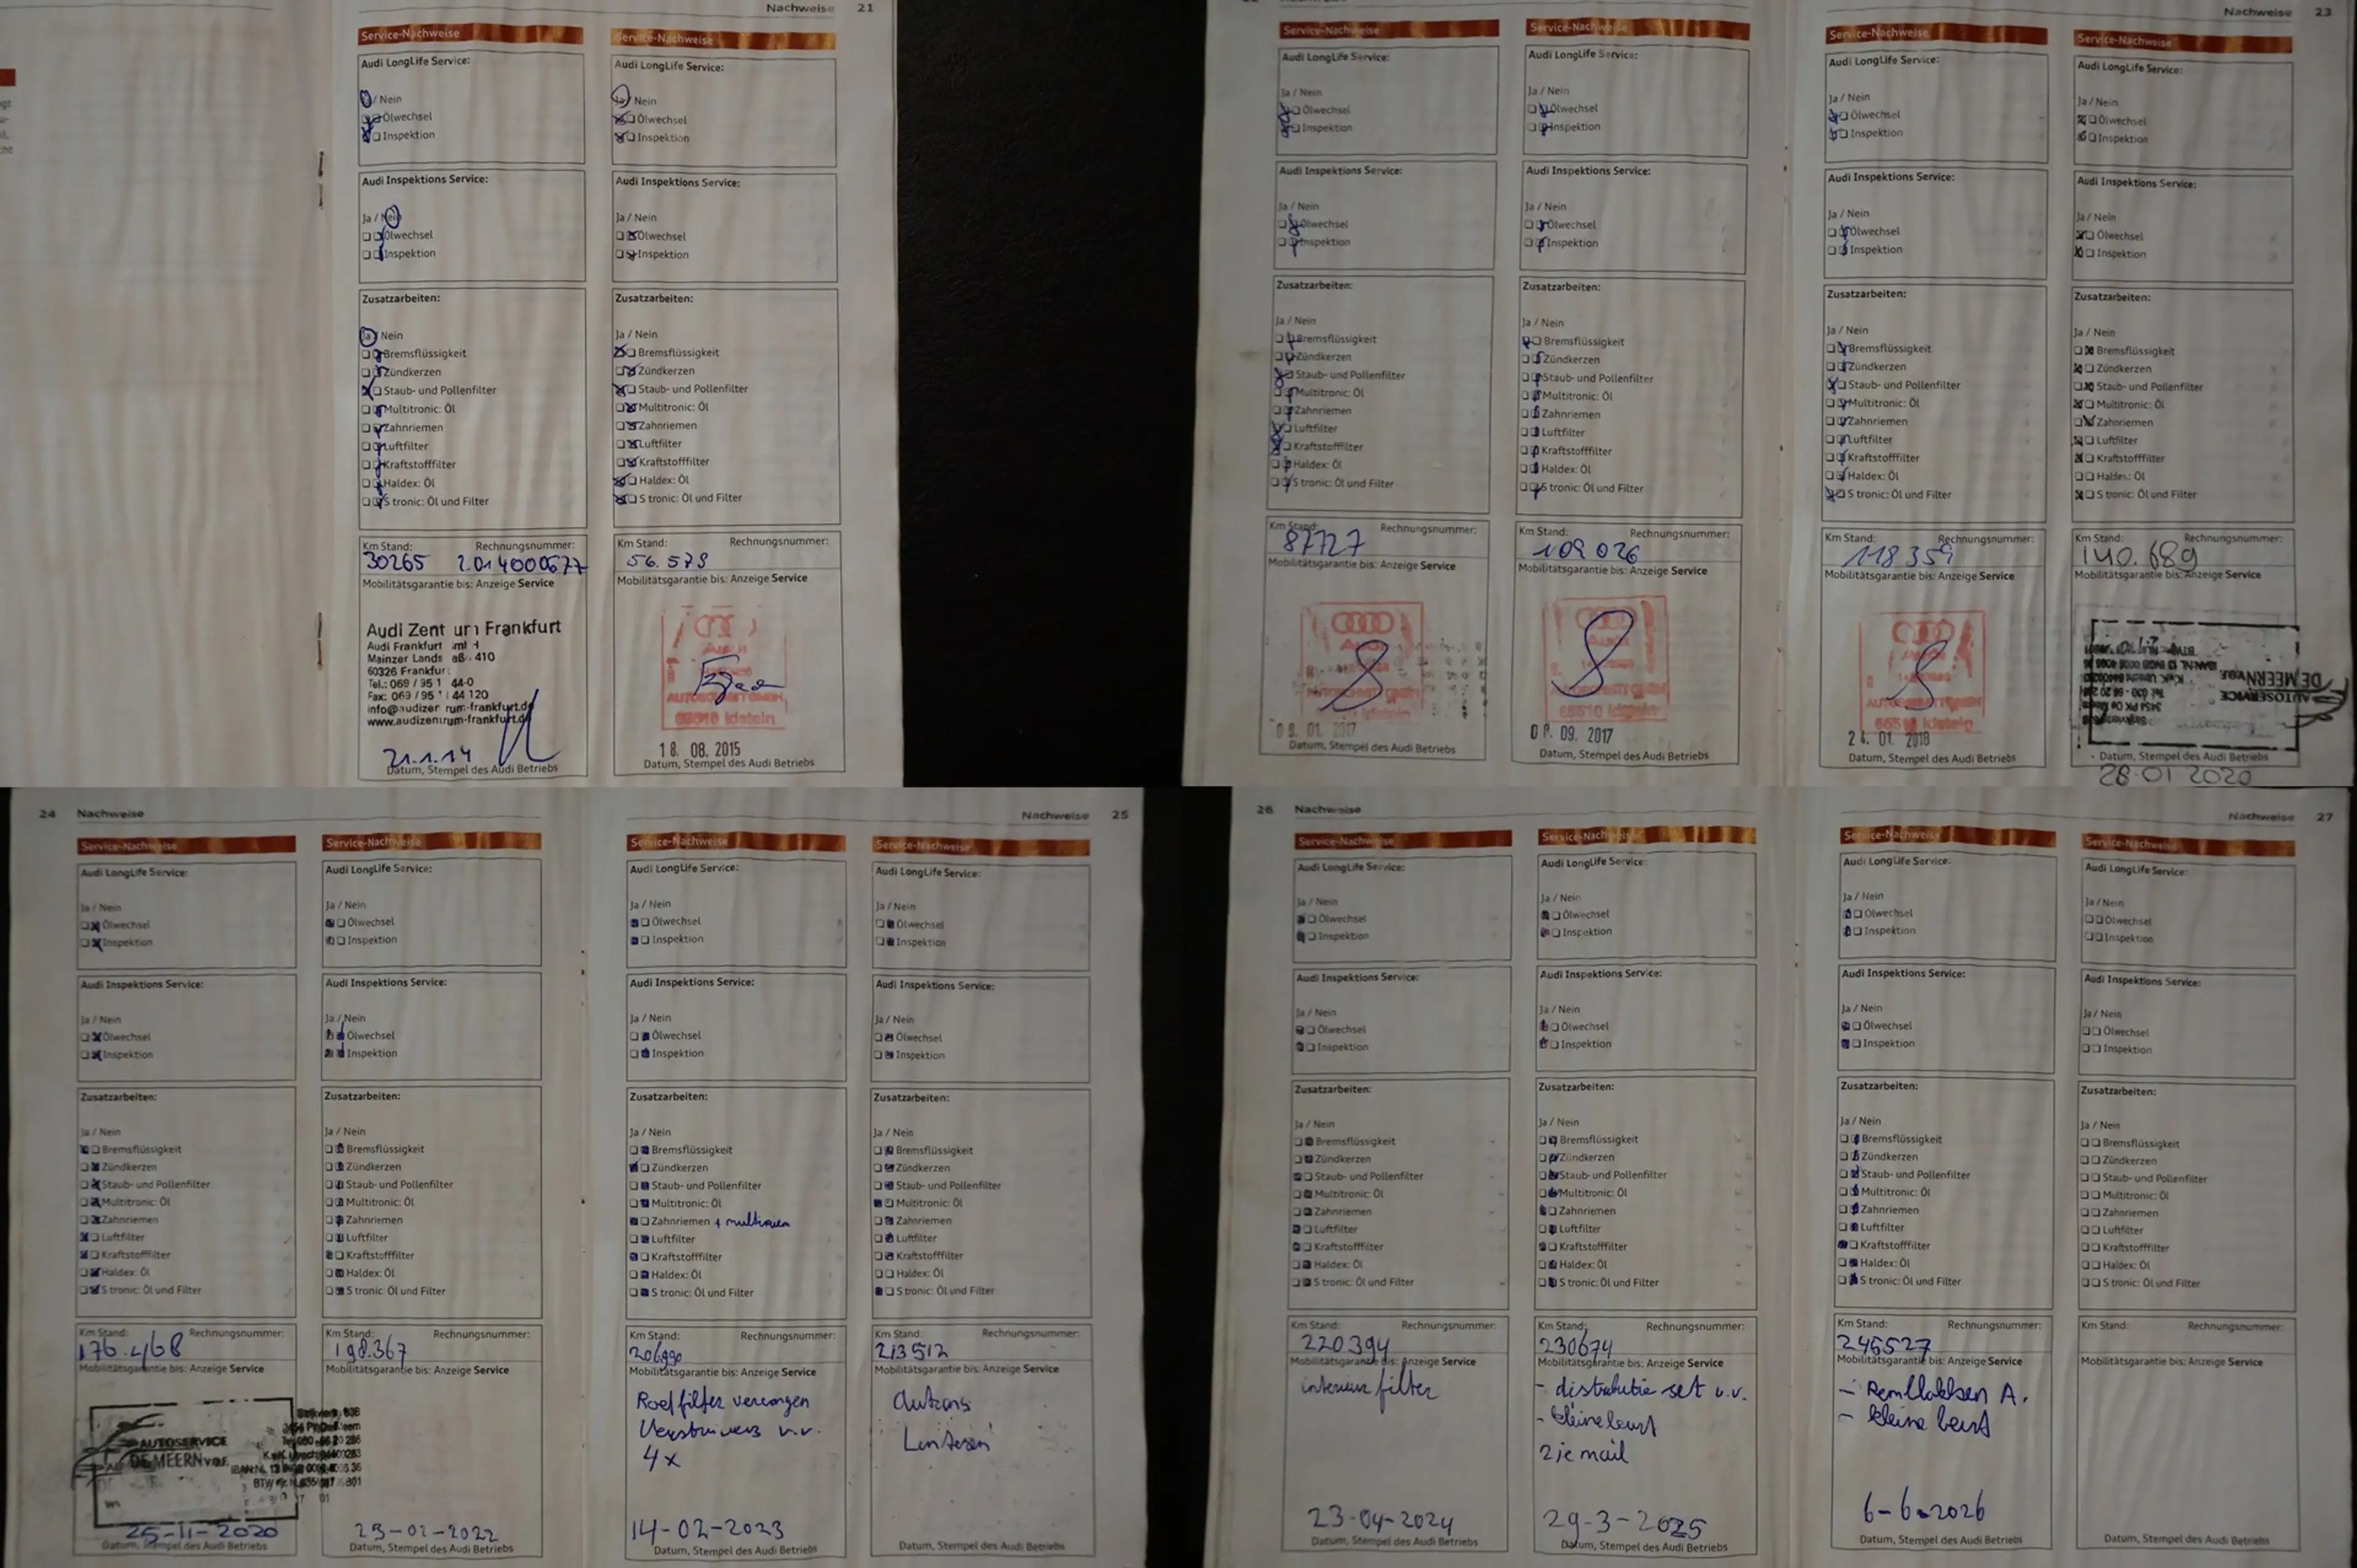 Nachweise 21
Service-Nachweise
Audi LongLife Service:
Ja / Nein
Ölwechsel
Inspektion
Audi Inspektions Service:
Ja / Nein
Ölwechsel
Inspektion
Zusatzarbeiten:
Ja / Nein
Bremsflüssigkeit
Zündkerzen
Staub- und Pollenfilter
Multitronic: Öl
Zahnriemen
Luftfilter
Kraftstofffilter
Haldex: Öl
S tronic: Öl und Filter
Km Stand: Rechnungsnummer:
30265
Mobilitätsgarantie bis: Anzeige Service
Audi Zentrum Frankfurt
Audi Frankfurt
Mainzer Lands 410
60326 Frankfurt
info@audizentrum-frankfurt.de
www.audizentrum-frankfurt.de
21.1.14
Datum, Stempel des Audi Betriebs
Service-Nachweise
Audi LongLife Service:
Ja / Nein
Ölwechsel
Inspektion
Audi Inspektions Service:
Ja / Nein
Ölwechsel
Inspektion
Zusatzarbeiten:
Ja / Nein
Bremsflüssigkeit
Zündkerzen
Staub- und Pollenfilter
Multitronic: Öl
Zahnriemen
Luftfilter
Kraftstofffilter
Haldex: Öl
S tronic: Öl und Filter
Km Stand: Rechnungsnummer:
56.573
Mobilitätsgarantie bis: Anzeige Service
65510 Idstein
18. 08. 2015
Datum, Stempel des Audi Betriebs
Service-Nachweise
Audi LongLife Service:
Ja / Nein
Ölwechsel
Inspektion
Audi Inspektions Service:
Ja / Nein
Ölwechsel
Inspektion
Zusatzarbeiten:
Ja / Nein
Bremsflüssigkeit
Zündkerzen
Staub- und Pollenfilter
Multitronic: Öl
Zahnriemen
Luftfilter
Kraftstofffilter
Haldex: Öl
S tronic: Öl und Filter
Km Stand: Rechnungsnummer:
87727
Mobilitätsgarantie bis: Anzeige Service
Idstein
01. 2017
Datum, Stempel des Audi Betriebs
Service-Nachweise
Audi LongLife Service:
Ja / Nein
Ölwechsel
Inspektion
Audi Inspektions Service:
Ja / Nein
Ölwechsel
Inspektion
Zusatzarbeiten:
Ja / Nein
Bremsflüssigkeit
Zündkerzen
Staub- und Pollenfilter
Multitronic: Öl
Zahnriemen
Luftfilter
Kraftstofffilter
Haldex: Öl
S tronic: Öl und Filter
Km Stand: Rechnungsnummer:
109 026
Mobilitätsgarantie bis: Anzeige Service
65510 Idstein
09. 2017
Datum, Stempel des Audi Betriebs
Nachweise 23
Service-Nachweise
Audi LongLife Service:
Ja / Nein
Ölwechsel
Inspektion
Audi Inspektions Service:
Ja / Nein
Ölwechsel
Inspektion
Zusatzarbeiten:
Ja / Nein
Bremsflüssigkeit
Zündkerzen
Staub- und Pollenfilter
Multitronic: Öl
Zahnriemen
Luftfilter
Kraftstofffilter
Haldex: Öl
S tronic: Öl und Filter
Km Stand: Rechnungsnummer:
118 359
Mobilitätsgarantie bis: Anzeige Service
65510 Idstein
24. 01. 2018
Datum, Stempel des Audi Betriebs
Service-Nachweise
Audi LongLife Service:
Ja / Nein
Ölwechsel
Inspektion
Audi Inspektions Service:
Ja / Nein
Ölwechsel
Inspektion
Zusatzarbeiten:
Ja / Nein
Bremsflüssigkeit
Zündkerzen
Staub- und Pollenfilter
Multitronic: Öl
Zahnriemen
Luftfilter
Kraftstofffilter
Haldex: Öl
S tronic: Öl und Filter
Km Stand: Rechnungsnummer:
140.689
Mobilitätsgarantie bis: Anzeige Service
AUTOSERVICE
DE MEERN v.o.f.
Datum, Stempel des Audi Betriebs
28-01 2020
24 Nachweise
Service-Nachweise
Audi LongLife Service:
Ja / Nein
Ölwechsel
Inspektion
Audi Inspektions Service:
Ja / Nein
Ölwechsel
Inspektion
Zusatzarbeiten:
Ja / Nein
Bremsflüssigkeit
Zündkerzen
Staub- und Pollenfilter
Multitronic: Öl
Zahnriemen
Luftfilter
Kraftstofffilter
Haldex: Öl
S tronic: Öl und Filter
Km Stand: Rechnungsnummer:
176.468
Mobilitätsgarantie bis: Anzeige Service
AUTOSERVICE
DE MEERN v.o.f.
25-11-2020
Datum, Stempel des Audi Betriebs
Service-Nachweise
Audi LongLife Service:
Ja / Nein
Ölwechsel
Inspektion
Audi Inspektions Service:
Ja / Nein
Ölwechsel
Inspektion
Zusatzarbeiten:
Ja / Nein
Bremsflüssigkeit
Zündkerzen
Staub- und Pollenfilter
Multitronic: Öl
Zahnriemen
Luftfilter
Kraftstofffilter
Haldex: Öl
S tronic: Öl und Filter
Km Stand: Rechnungsnummer:
198.367
Mobilitätsgarantie bis: Anzeige Service
Datum, Stempel des Audi Betriebs
Nachweise 25
Service-Nachweise
Audi LongLife Service:
Ja / Nein
Ölwechsel
Inspektion
Audi Inspektions Service:
Ja / Nein
Ölwechsel
Inspektion
Zusatzarbeiten:
Ja / Nein
Bremsflüssigkeit
Zündkerzen
Staub- und Pollenfilter
Multitronic: Öl
Zahnriemen
Luftfilter
Kraftstofffilter
Haldex: Öl
S tronic: Öl und Filter
Km Stand: Rechnungsnummer:
206990
Mobilitätsgarantie bis: Anzeige Service
Roetfilter vervangen
Verstuivers v.v.
4x
14-02-2023
Datum, Stempel des Audi Betriebs
Service-Nachweise
Audi LongLife Service:
Ja / Nein
Ölwechsel
Inspektion
Audi Inspektions Service:
Ja / Nein
Ölwechsel
Inspektion
Zusatzarbeiten:
Ja / Nein
Bremsflüssigkeit
Zündkerzen
Staub- und Pollenfilter
Multitronic: Öl
Zahnriemen
Luftfilter
Kraftstofffilter
Haldex: Öl
S tronic: Öl und Filter
Km Stand: Rechnungsnummer:
213512
Mobilitätsgarantie bis: Anzeige Service
Datum, Stempel des Audi Betriebs
26 Nachweise
Service-Nachweise
Audi LongLife Service:
Ja / Nein
Ölwechsel
Inspektion
Audi Inspektions Service:
Ja / Nein
Ölwechsel
Inspektion
Zusatzarbeiten:
Ja / Nein
Bremsflüssigkeit
Zündkerzen
Staub- und Pollenfilter
Multitronic: Öl
Zahnriemen
Luftfilter
Kraftstofffilter
Haldex: Öl
S tronic: Öl und Filter
Km Stand: Rechnungsnummer:
220394
Mobilitätsgarantie bis: Anzeige Service
interieur filter
23-04-2024
Datum, Stempel des Audi Betriebs
Service-Nachweise
Audi LongLife Service:
Ja / Nein
Ölwechsel
Inspektion
Audi Inspektions Service:
Ja / Nein
Ölwechsel
Inspektion
Zusatzarbeiten:
Ja / Nein
Bremsflüssigkeit
Zündkerzen
Staub- und Pollenfilter
Multitronic: Öl
Zahnriemen
Luftfilter
Kraftstofffilter
Haldex: Öl
S tronic: Öl und Filter
Km Stand: Rechnungsnummer:
230674
Mobilitätsgarantie bis: Anzeige Service
- distributie set v.v.
- kleine beurt
zie mail
29-3-2025
Datum, Stempel des Audi Betriebs
Nachweise 27
Service-Nachweise
Audi LongLife Service:
Ja / Nein
Ölwechsel
Inspektion
Audi Inspektions Service:
Ja / Nein
Ölwechsel
Inspektion
Zusatzarbeiten:
Ja / Nein
Bremsflüssigkeit
Zündkerzen
Staub- und Pollenfilter
Multitronic: Öl
Zahnriemen
Luftfilter
Kraftstofffilter
Haldex: Öl
S tronic: Öl und Filter
Km Stand: Rechnungsnummer:
245527
Mobilitätsgarantie bis: Anzeige Service
- Remblokken A.
- kleine beurt
6-6-2026
Datum, Stempel des Audi Betriebs
Service-Nachweise
Audi LongLife Service:
Ja / Nein
Ölwechsel
Inspektion
Audi Inspektions Service:
Ja / Nein
Ölwechsel
Inspektion
Zusatzarbeiten:
Ja / Nein
Bremsflüssigkeit
Zündkerzen
Staub- und Pollenfilter
Multitronic: Öl
Zahnriemen
Luftfilter
Kraftstofffilter
Haldex: Öl
S tronic: Öl und Filter
Km Stand: Rechnungsnummer:
Mobilitätsgarantie bis: Anzeige Service
Datum, Stempel des Audi Betriebs